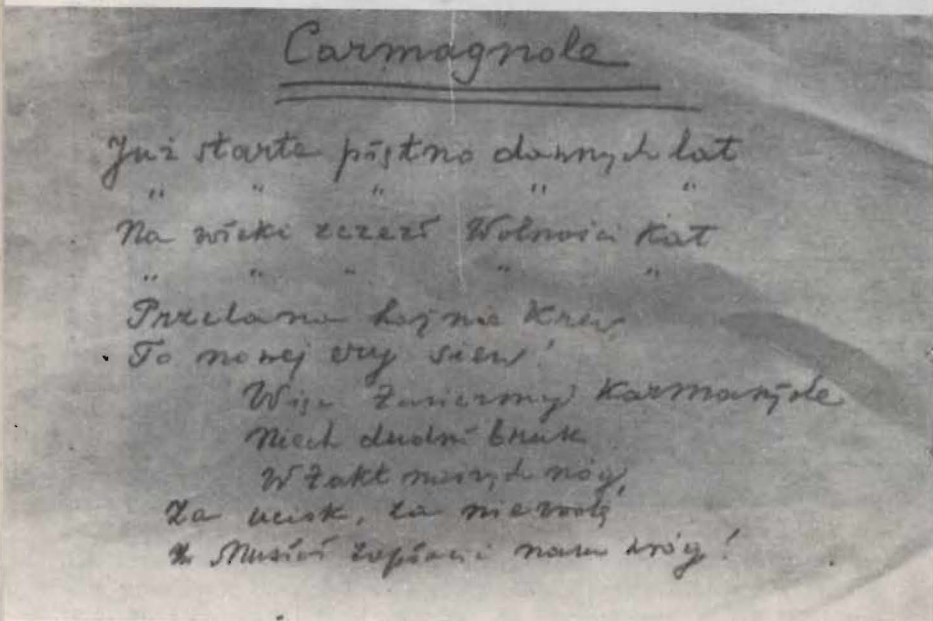 Carmagnole
Już starte piętno dawnych lat
" " " " "
Na wieki sczezł Wolności Kat
" " " " "
Przelana hojnie Krew
To nowej ery siew!
Więc Karmaniole
Niech dudni bruk
W takt naszych nóg
Za ucisk, za niewolę
Musiał zapłacić nasz wróg!